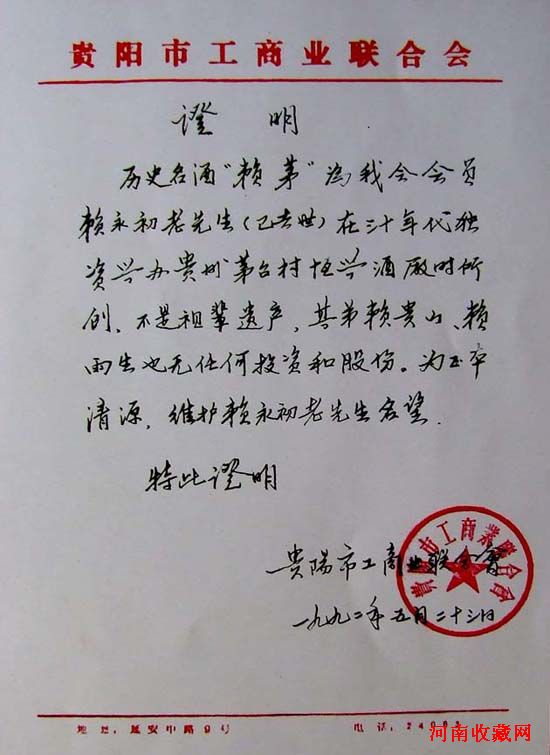 贵阳市工商业联合会
證明
历史名酒“赖茅”为我会会员
赖永初老先生(已去世)在三十年代独
资兴办贵州茅台村恒兴酒厰时所
创，不是祖辈遗产，其弟赖贵山、赖
雨生也无任何投资和股份。为正本
清源，维护赖永初老先生名望．
特此證明
貴陽市工商业联合會
一九九二年五月二十三日
貴陽市工商業联合会
地址：延安中路9号 电话：
河南收藏网